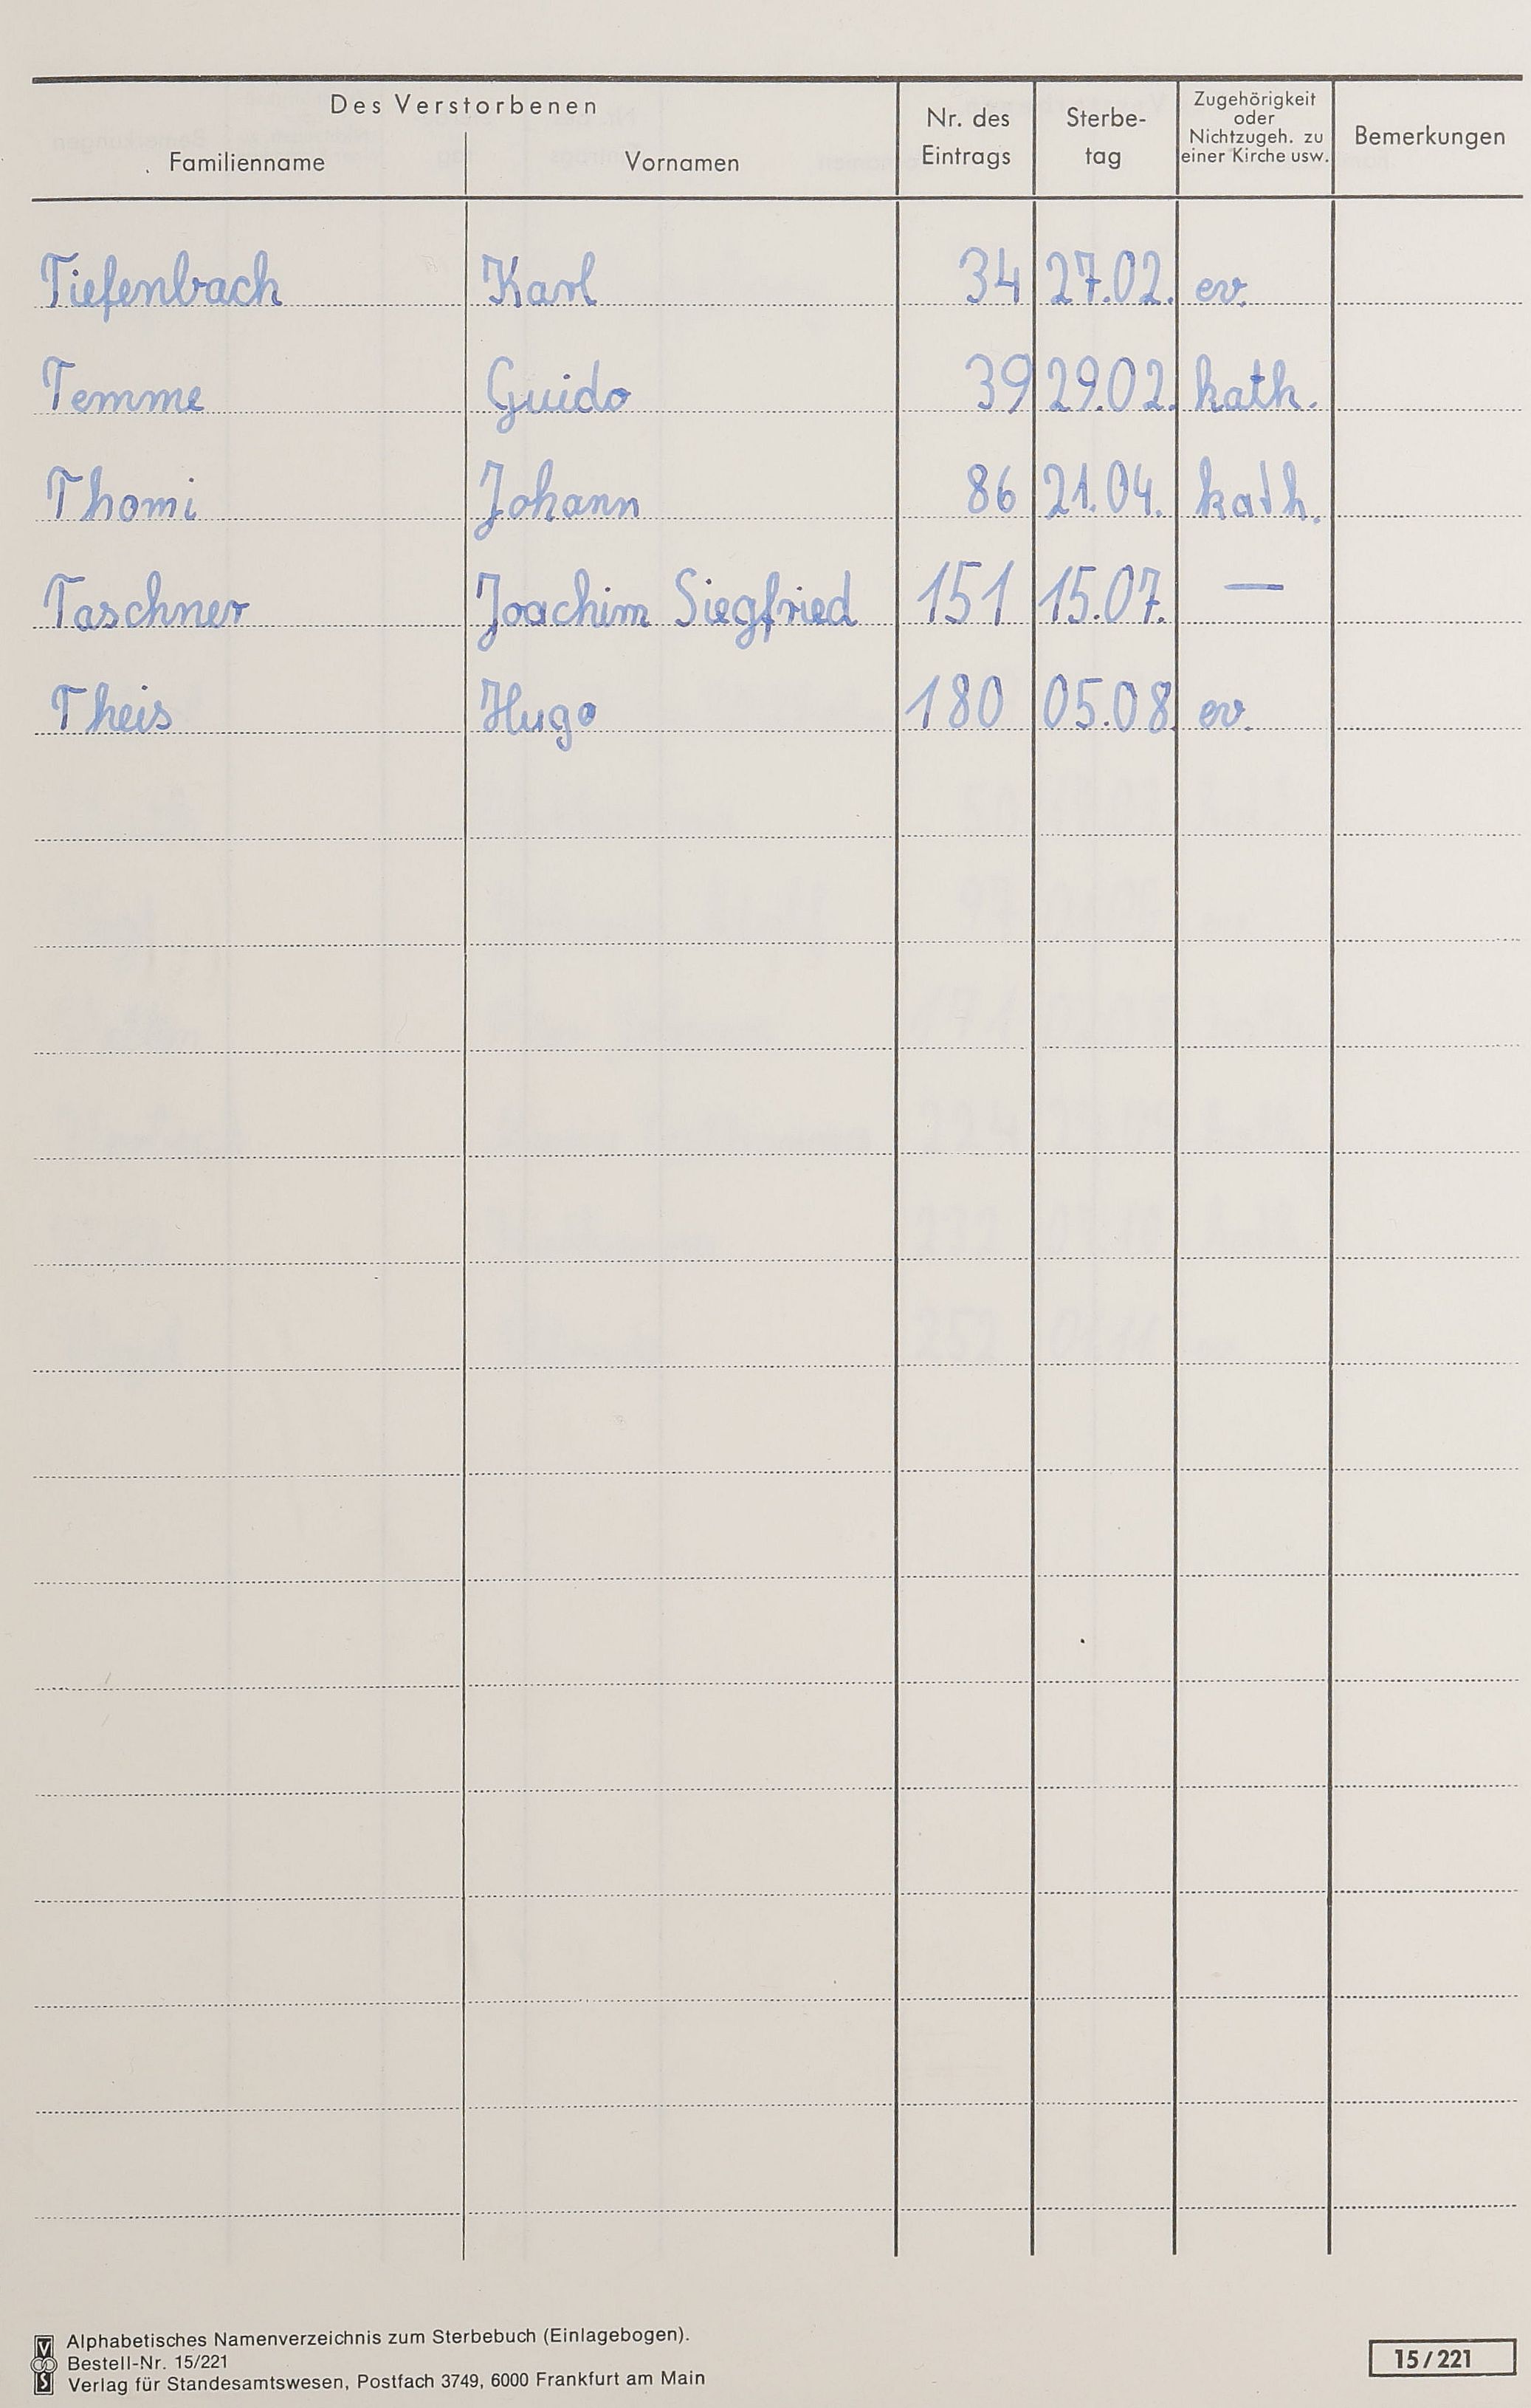 Des Verstorbenen
Familienname Vornamen Nr. des Eintrags Sterbe-tag Zugehörigkeit oder Nichtzugeh. zu einer Kirche usw. Bemerkungen
Tiefenbach Karl 34 27.02. ev.
Temme Guido 39 29.02. kath.
Thomi Johann 86 21.04. kath.
Taschner Joachim Siegfried 151 15.07. —
Theis Hugo 180 05.08. ev.
Alphabetisches Namenverzeichnis zum Sterbebuch (Einlagebogen).
Bestell-Nr. 15/221
Verlag für Standesamtswesen, Postfach 3749, 6000 Frankfurt am Main
15/221